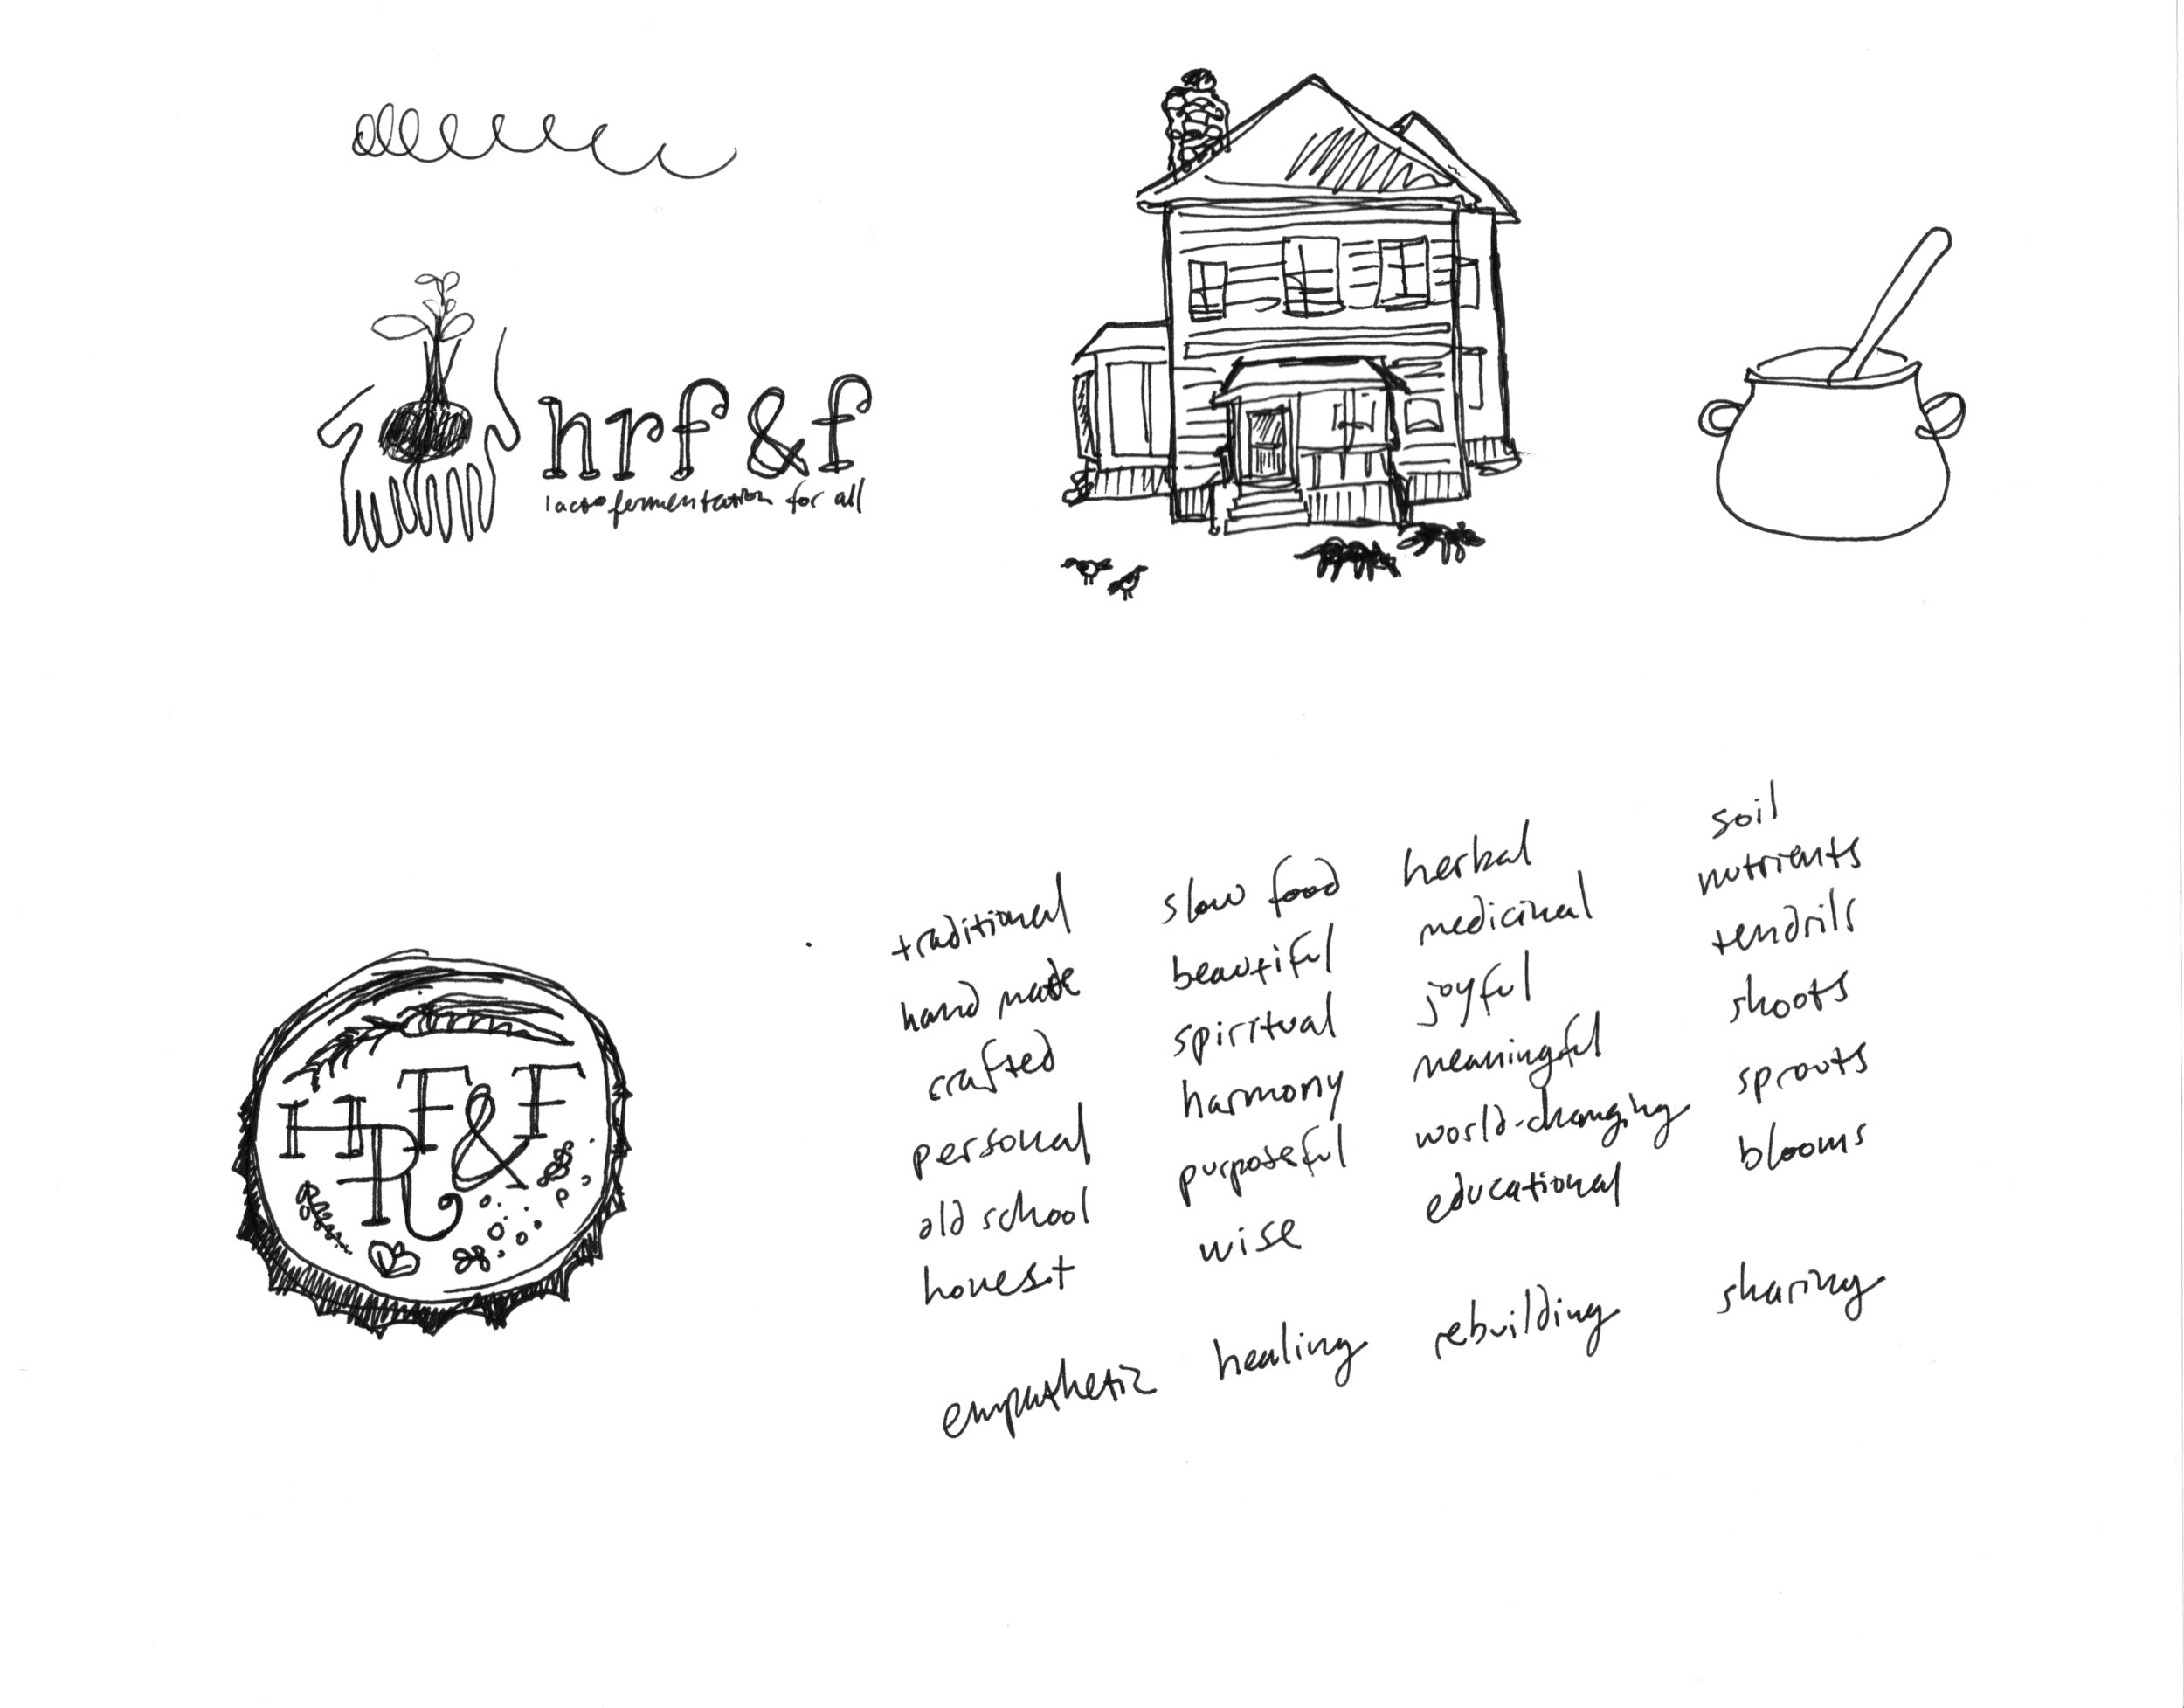 hrf&f
lactofermentation for all
HRF&F
traditional
hand made
crafted
personal
old school
honest
slow food
beautiful
spiritual
harmony
purposeful
wise
herbal
medicinal
joyful
meaningful
world-changing
educational
soil
nutrients
tendrils
shoots
sprouts
blooms
empathetic healing rebuilding sharing